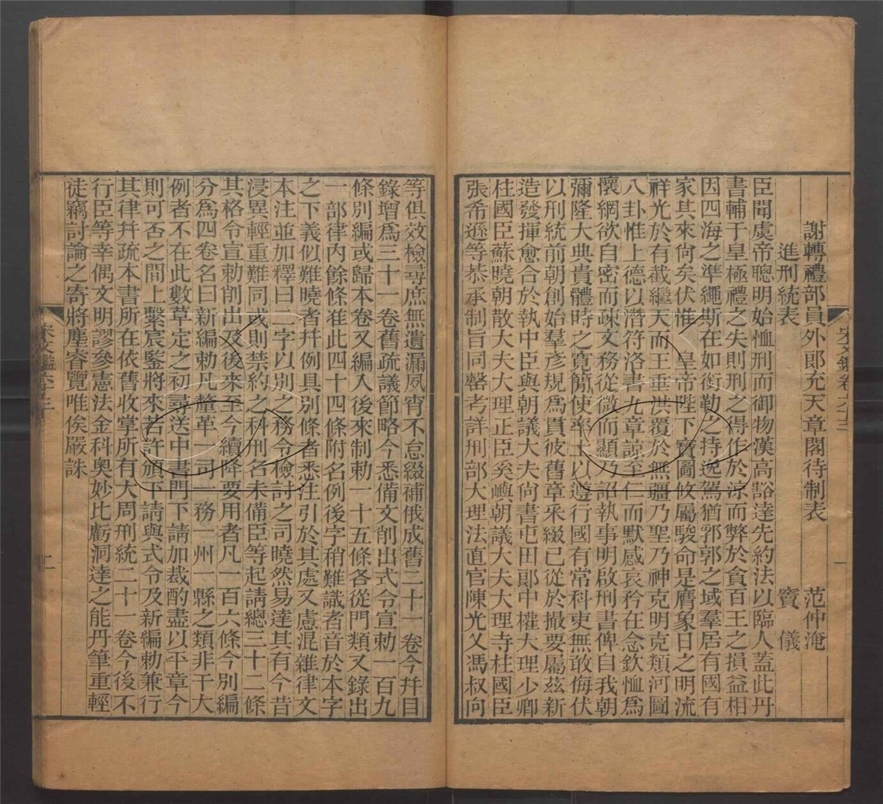 謝轉禮部員外郎充天章閣待制表 范仲淹
進刑統表 竇儀
臣聞虞帝聰明始恤刑而御物漢高豁達先約法以臨人蓋此丹
書輔于皇極禮之失則刑之得作於涼而弊於貪百王之損益相
因四海之準繩斯在如銜勒之持逸駕猶郛郭之域羣居有國有
家其來尙矣伏惟 皇帝陛下寶圖攸屬駿命是膺象日之明流
祥光於有截繼天而王垂洪覆於無疆乃聖乃神克明克類河圖
八卦惟上德以潛符洛書九章諒至仁而默感哀矜在念欽恤爲
懷網欲自密而疎文務從微而顯乃詔執事明啟刑書俾自我朝
彌隆大典貴體時之寬簡使率土以遵行國有常科吏無敢侮伏
以刑統前朝創始羣彥規爲貫彼舊章采綴已從於撮要屬茲新
造發揮愈合於執中臣與朝議大夫尙書屯田郞中權大理少卿
柱國臣蘇曉朝散大夫大理正臣奚嶼朝議大夫大理寺柱國臣
張希遜等恭承制旨同罄考詳刑部大理法直官陳光乂馮叔向
等俱效檢尋庶無遺漏夙宵不怠綴補俄成舊二十一卷今幷目
錄增爲三十一卷舊疏議節略今悉備文削出式令宣勅一百九
條別編或歸本卷又編入後來制勅一十五條各從門類又錄出
一部律內餘條准此四十四條附名例後字稍難識者音於本字
之下義似難曉者幷例具別條者悉注引於其處又慮混雜律文
本注並加釋曰二字以別之務令檢討之司曉然易達其有今昔
浸異輕重難同或則禁約之科刑名未備臣等起請總三十二條
其格令宣勅削出及後來至今續降要用者凡一百六條今別編
分爲四卷名曰新編勅凡釐革一司一務一州一縣之類非干大
例者不在此數草定之初尋送中書門下請加裁酌盡以平章今
則可否之間上繫宸鑒將來若許頒下請與式令及新編勅兼行
其律幷疏本書所在依舊收掌所有大周刑統二十一卷今後不
行臣等幸偶文明謬參憲法金科奧妙比虧洞達之能丹筆重輕
徒竊討論之寄將塵睿覽唯俟嚴誅